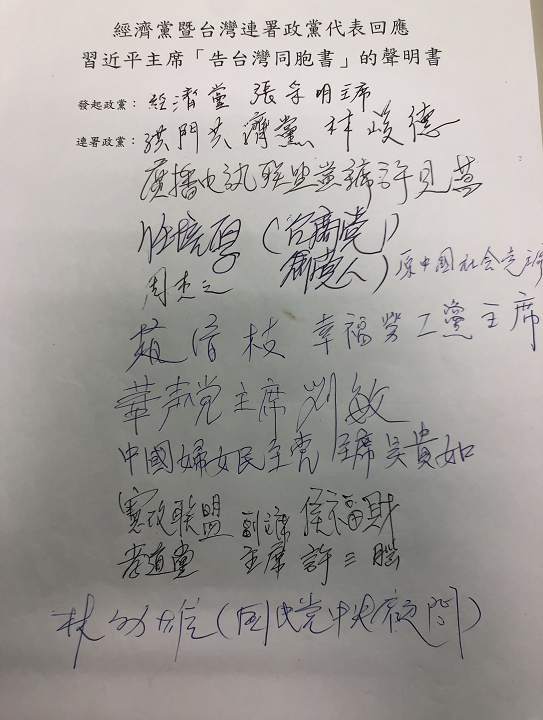 經濟黨暨台灣連署政黨代表回應
習近平主席「告台灣同胞書」的聲明書
發起政黨：經濟黨 張宇明主席
連署政黨：洪門共濟黨 林峻德
廣播電訊聯盟黨 許見
(台商党
創党人) 原中国社会党
周
枝 幸福勞工黨主席
華声党主席 刘敏
中國婦女民主党 主席 吳貴如
憲政联盟 副主席 侯福財
孝道堂 主席 許三
林 (國民党中央顧問)